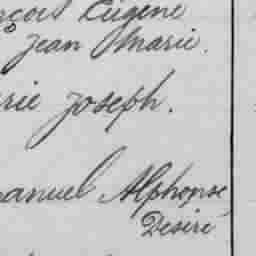 nçois Eugène
Jean Marie.
rie Joseph.
anuel Alphonse
Desiré